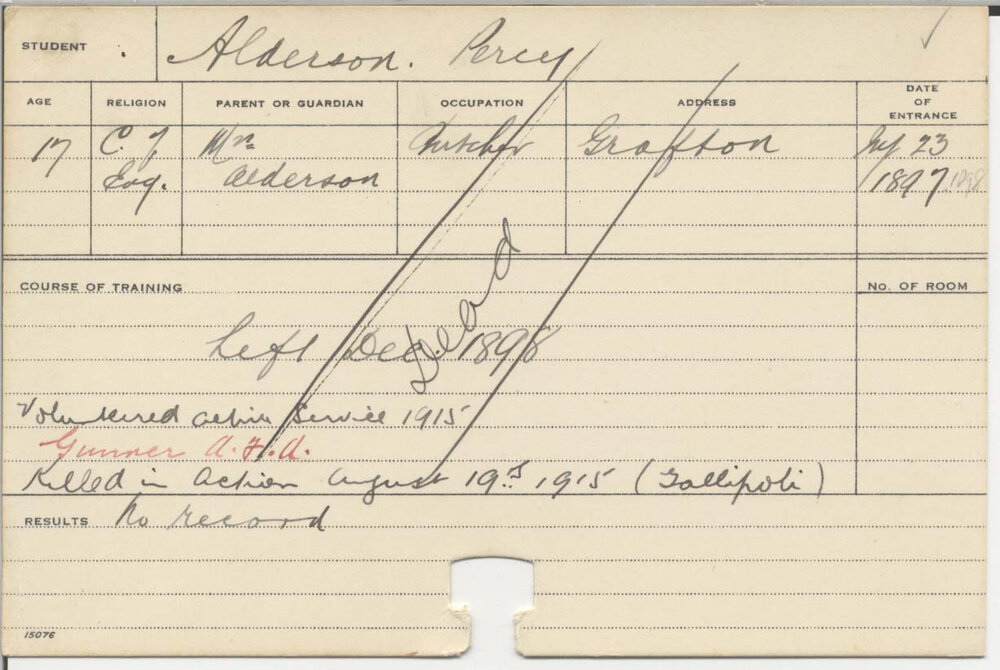 STUDENT Alderson. Percy
AGE RELIGION PARENT OR GUARDIAN OCCUPATION ADDRESS DATE OF ENTRANCE
17 C. of Mrs Butcher Grafton 23
Eng. Alderson 1897 1898
Dead
COURSE OF TRAINING No. OF ROOM
Left Dec. 1898
Volunteered active service 1915
Gunner A.F.A.
Killed in Action August 19th 1915 (Gallipoli)
RESULTS No record
15076